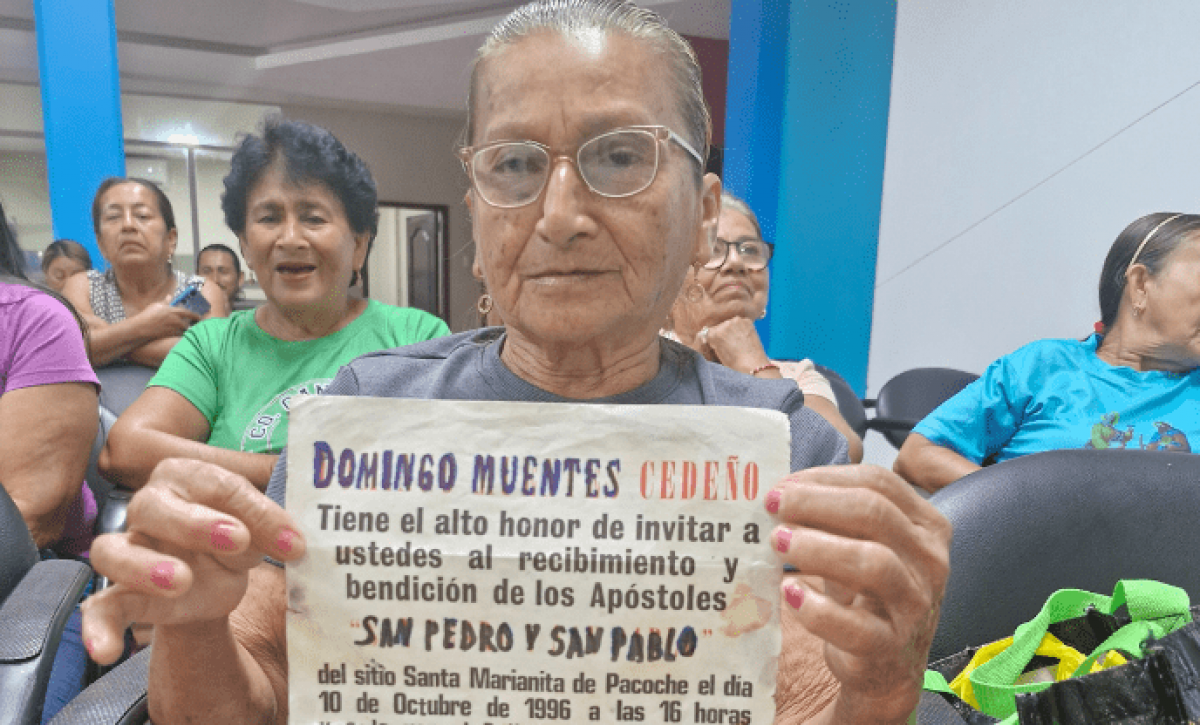 DOMINGO MUENTES CEDEÑO
Tiene el alto honor de invitar a
ustedes al recibimiento y
bendición de los Apóstoles
"SAN PEDRO Y SAN PABLO"
del sitio Santa Marianita de Pacoche el día
10 de Octubre de 1996 a las 16 horas